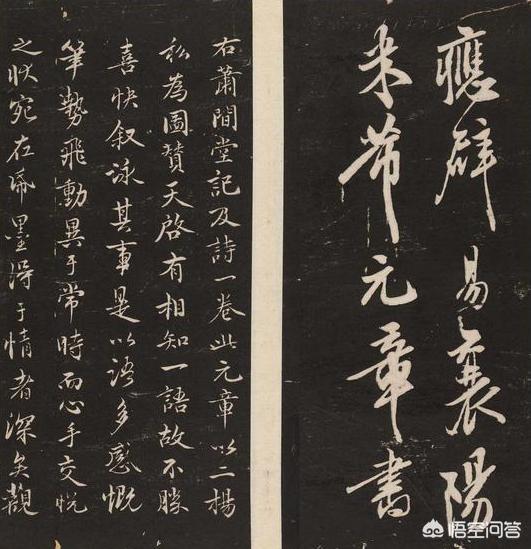 應辟易襄陽
米芾元章書
右蕭閒堂記及詩一卷此元章以二楊
私為圖贊天啟有相知一語故不勝
喜快叙詠其事是以語多感慨
筆勢飛動異于常時而心手交悅
之状宛在帋墨得于情者深矣觀
悟空问答